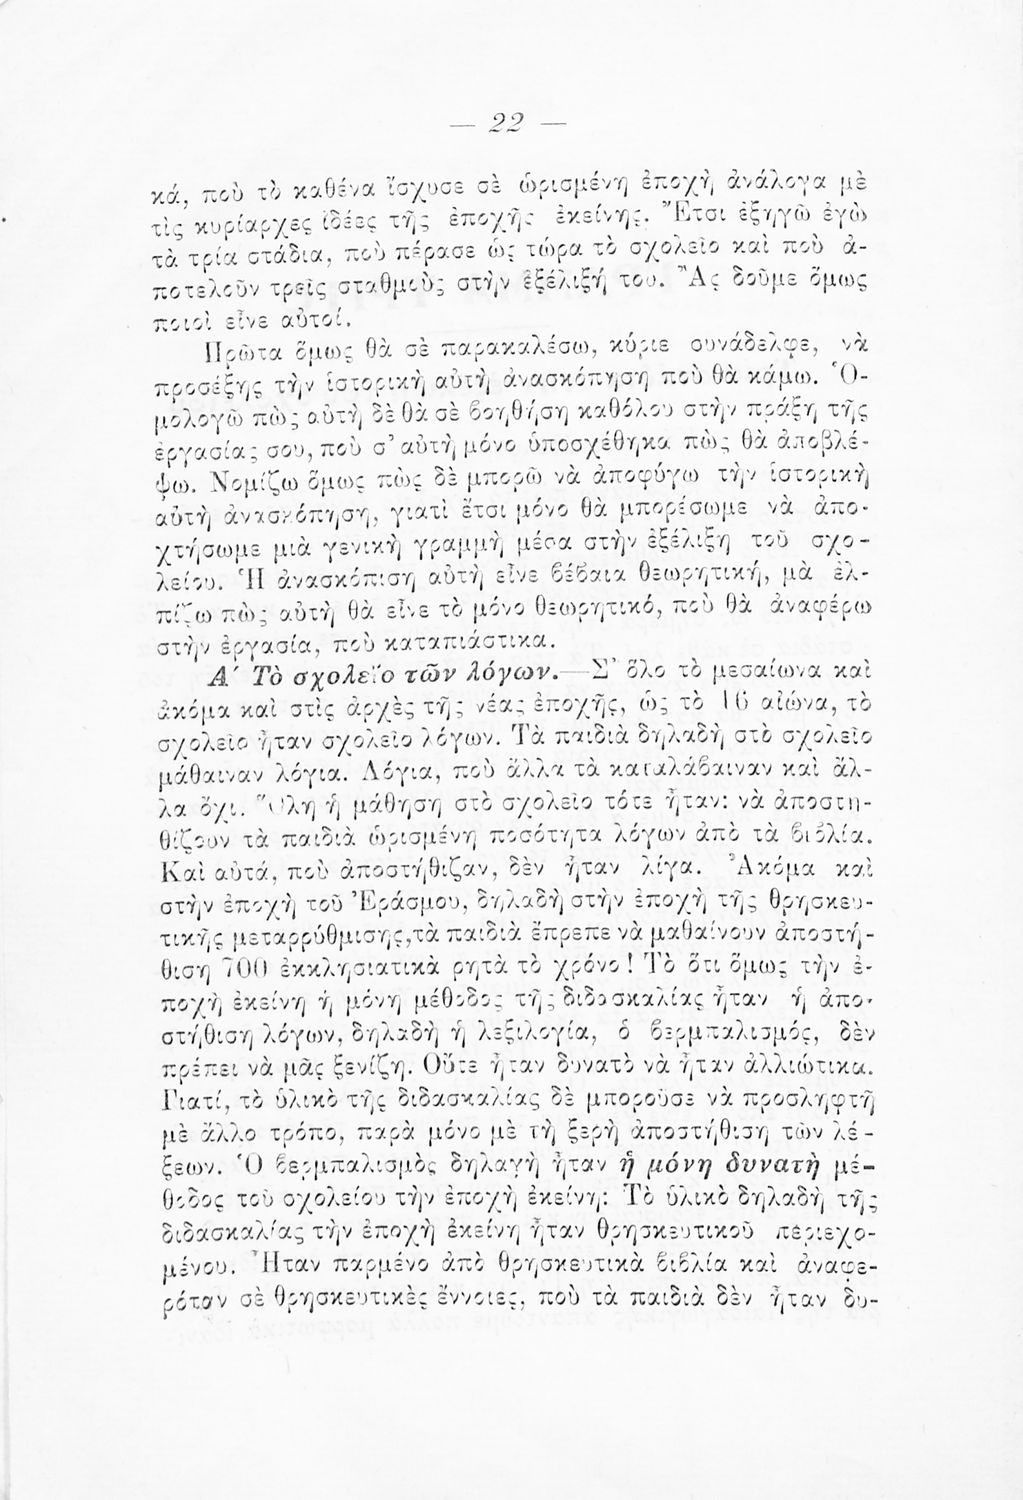 — 22 —
κά, ποὺ τὸ καθένα ἴσχυσε σὲ ὡρισμένη ἐποχὴ ἀνάλογα μὲ
τὶς κυρίαρχες ἰδέες τῆς ἐποχῆς ἐκείνης. Ἔτσι ἐξηγῶ ἐγὼ
τὰ τρία στάδια, ποὺ πέρασε ὡς τώρα τὸ σχολεῖο καὶ ποὺ ἀ-
ποτελοῦν τρεῖς σταθμοὺς στὴν ἐξέλιξή του. Ἂς δοῦμε ὅμως
ποιοὶ εἶνε αὐτοί.
Πρῶτα ὅμως θὰ σὲ παρακαλέσω, κύριε συνάδελφε, νὰ
προσέξῃς τὴν ἱστορικὴ αὐτὴ ἀνασκόπηση ποὺ θὰ κάμω. Ὁ-
μολογῶ πὼς αὐτὴ δὲ θὰ σὲ βοηθήσῃ καθόλου στὴν πράξη τῆς
ἐργασίας σου, ποὺ σ' αὐτὴ μόνο ὑποσχέθηκα πὼς θὰ ἀποβλέ-
ψω. Νομίζω ὅμως πὼς δὲ μπορῶ νὰ ἀποφύγω τὴν ἱστορικὴ
αὐτὴ ἀνασκόπηση, γιατὶ ἔτσι μόνο θὰ μπορέσωμε νὰ ἀπο-
χτήσωμε μιὰ γενικὴ γραμμὴ μέσα στὴν ἐξέλιξη τοῦ σχο-
λείου. Ἡ ἀνασκόπιση αὐτὴ εἶνε βέβαια θεωρητική, μὰ ἐλ-
πίζω πὼς αὐτὴ θὰ εἶνε τὸ μόνο θεωρητικό, ποὺ θὰ ἀναφέρω
στὴν ἐργασία, ποὺ καταπιάστικα.
Α΄ Τὸ σχολεῖο τῶν λόγων.—Σ' ὅλο τὸ μεσαίωνα καὶ
ἀκόμα καὶ στὶς ἀρχὲς τῆς νέας ἐποχῆς, ὡς τὸ 16 αἰώνα, τὸ
σχολεῖο ἦταν σχολεῖο λόγων. Τὰ παιδιὰ δηλαδὴ στὸ σχολεῖο
μάθαιναν λόγια. Λόγια, ποὺ ἄλλα τὰ καταλάβαιναν καὶ ἄλ-
λα ὄχι. Ὅλη ἡ μάθηση στὸ σχολεῖο τότε ἦταν: νὰ ἀποστη-
θίζουν τὰ παιδιὰ ὡρισμένη ποσότητα λόγων ἀπὸ τὰ βιβλία.
Καὶ αὐτά, ποὺ ἀποστήθιζαν, δὲν ἦταν λίγα. Ἀκόμα καὶ
στὴν ἐποχὴ τοῦ Ἐράσμου, δηλαδὴ στὴν ἐποχὴ τῆς θρησκευ-
τικῆς μεταρρύθμισης, τὰ παιδιὰ ἔπρεπε νὰ μαθαίνουν ἀποστή-
θιση 700 ἐκκλησιατικὰ ρητὰ τὸ χρόνο! Τὸ ὅτι ὅμως τὴν ἐ-
ποχὴ ἐκείνη ἡ μόνη μέθοδος τῆς διδασκαλίας ἦταν ἡ ἀπο-
στήθιση λόγων, δηλαδὴ ἡ λεξιλογία, ὁ βερμπαλισμός, δὲν
πρέπει νὰ μᾶς ξενίζῃ. Οὔτε ἦταν δυνατὸ νὰ ἦταν ἀλλιώτικα.
Γιατί, τὸ ὑλικὸ τῆς διδασκαλίας δὲ μποροῦσε νὰ προσληφτῇ
μὲ ἄλλο τρόπο, παρὰ μόνο μὲ τὴ ξερὴ ἀποστήθιση τῶν λέ-
ξεων. Ὁ βερμπαλισμὸς δηλαγὴ ἦταν ἡ μόνη δυνατὴ μέ-
θοδος τοῦ σχολείου τὴν ἐποχὴ ἐκείνη: Τὸ ὑλικὸ δηλαδὴ τῆς
διδασκαλίας τὴν ἐποχὴ ἐκείνη ἦταν θρησκευτικοῦ περιεχο-
μένου. Ἦταν παρμένο ἀπὸ θρησκευτικὰ βιβλία καὶ ἀναφε-
ρόταν σὲ θρησκευτικὲς ἔννοιες, ποὺ τὰ παιδιὰ δὲν ἦταν δυ-